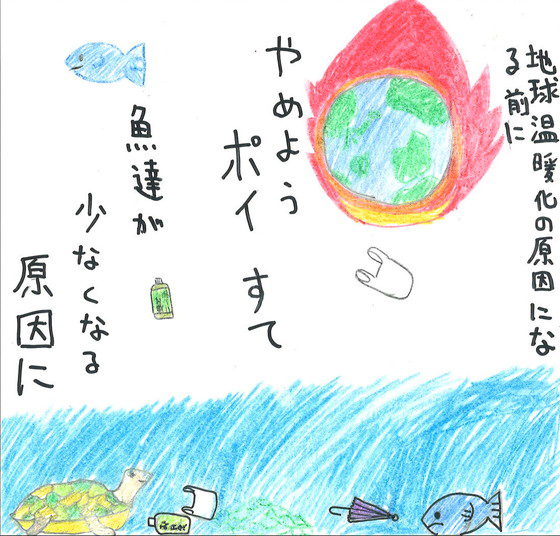 地球温暖化の原因にな
る前に
やめよう
ポイすて
魚達が
少なくなる
原因に